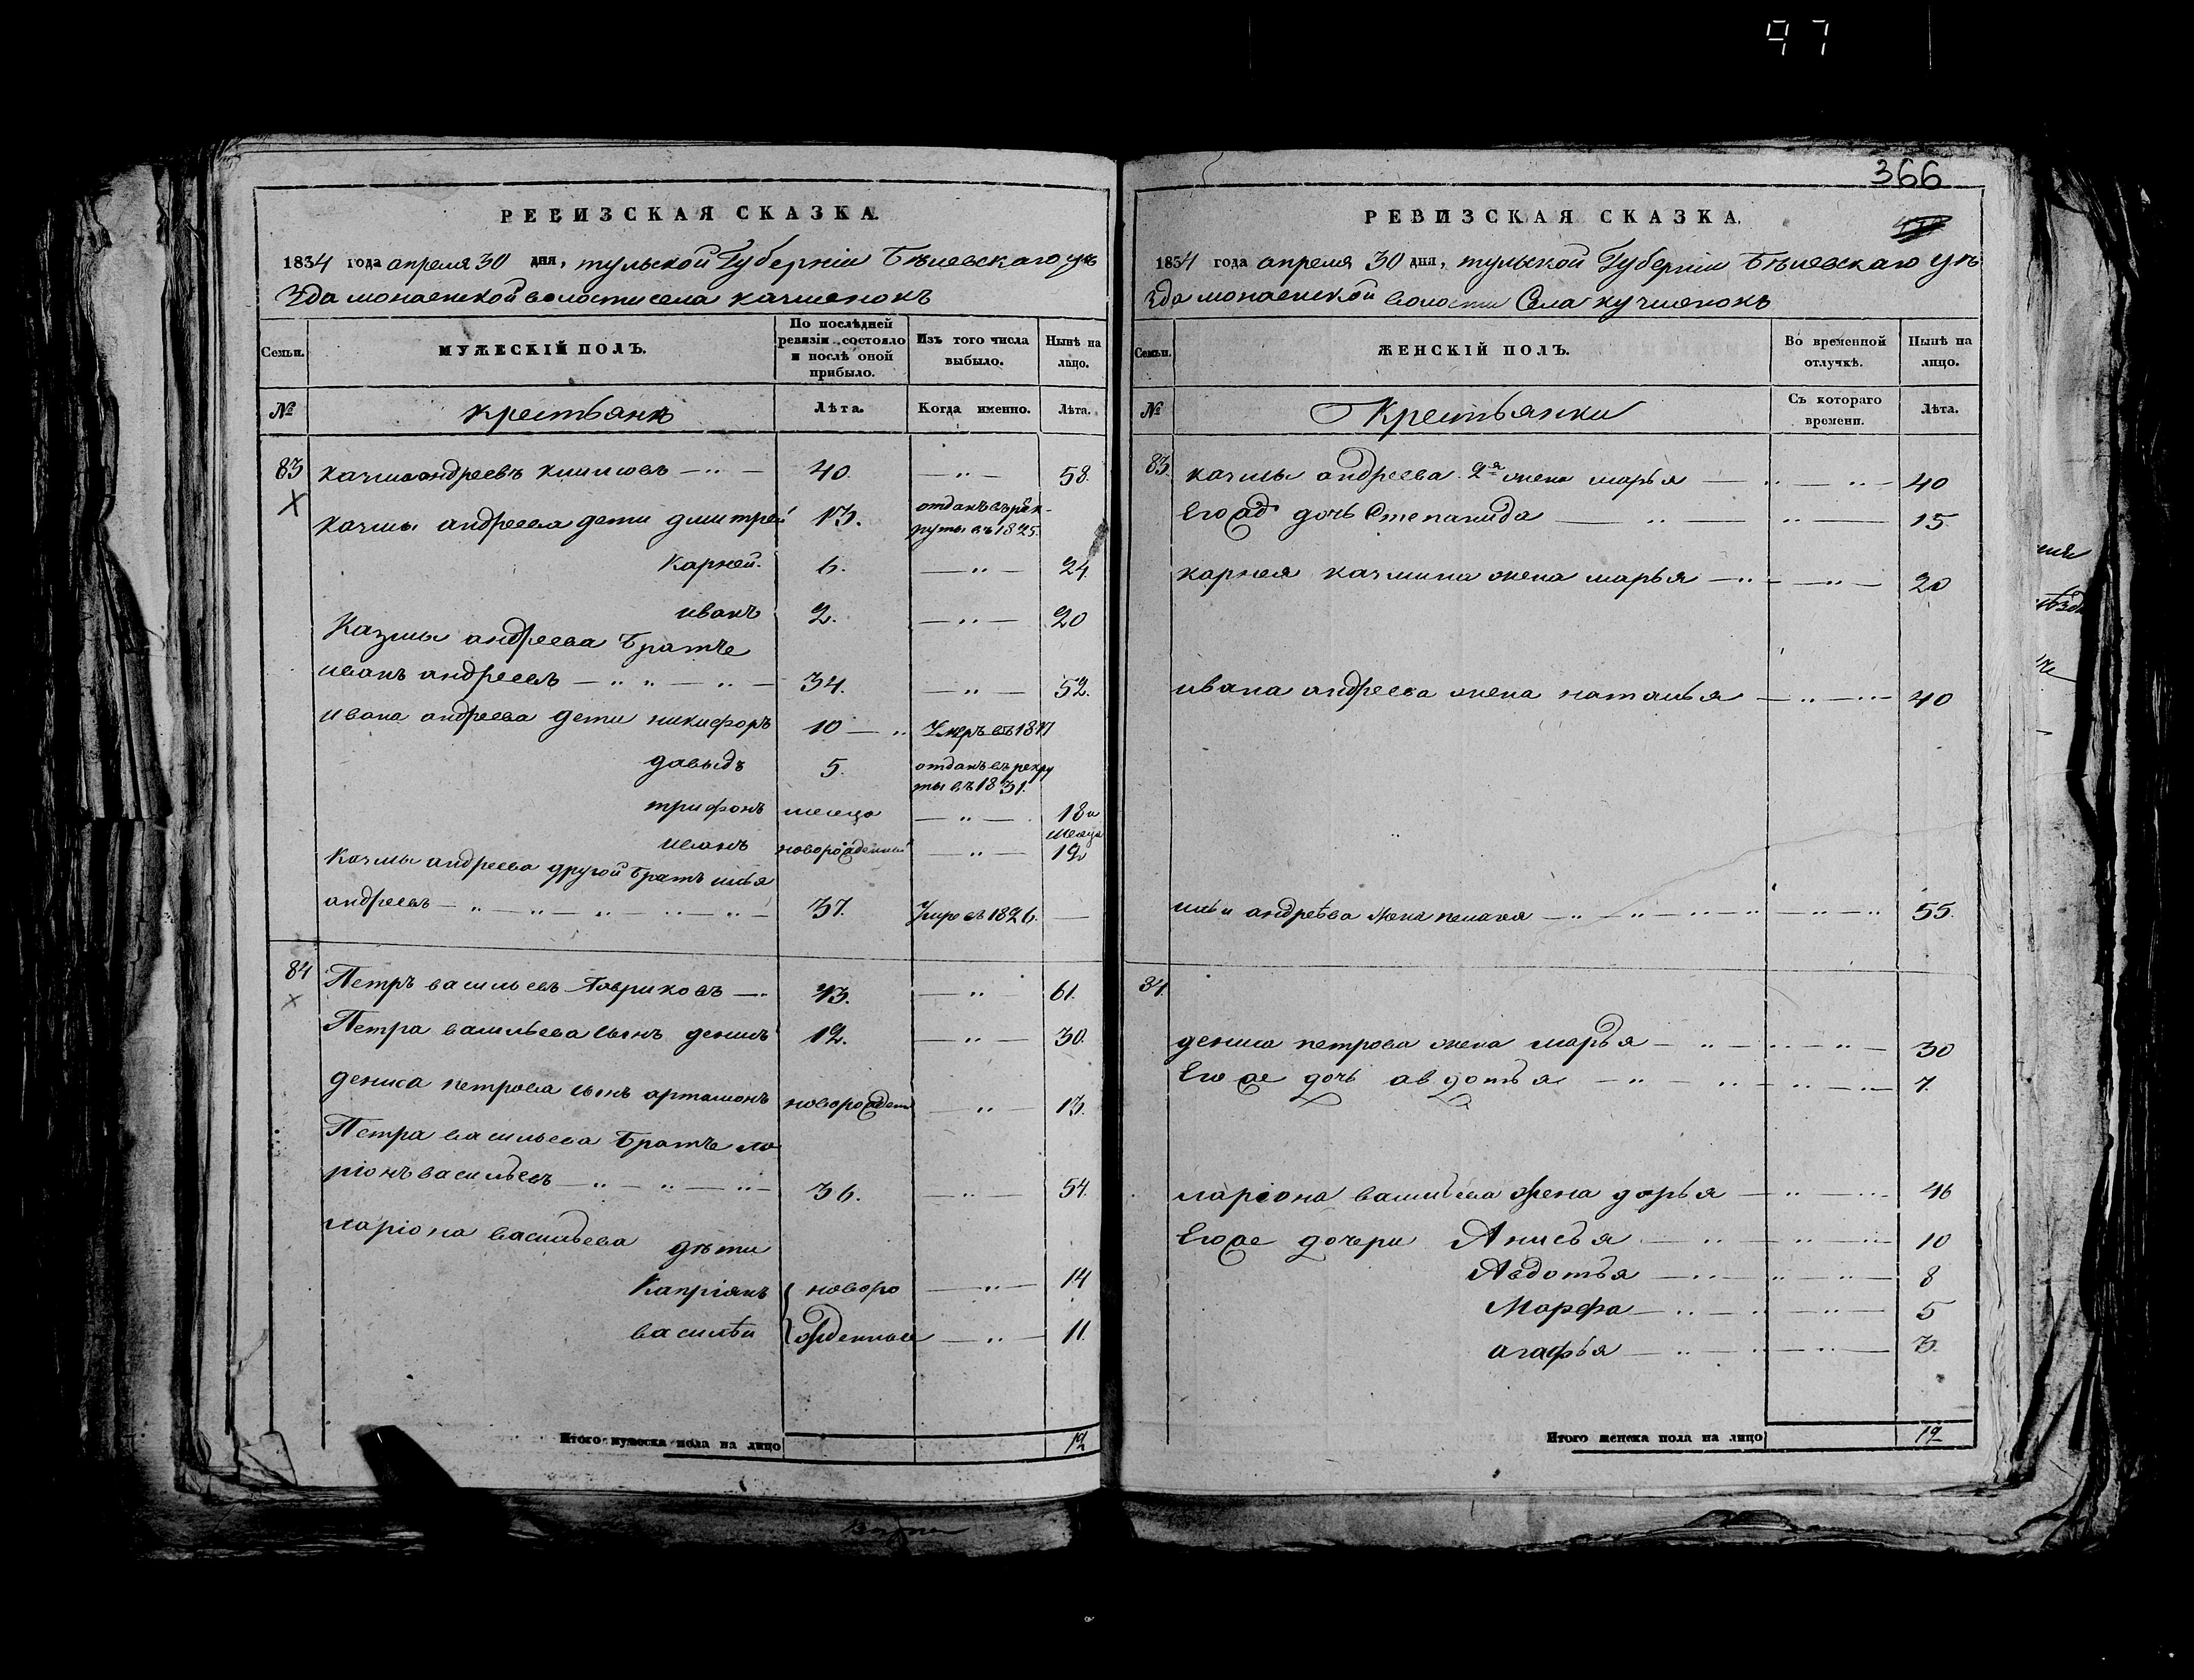 97
РЕВИЗСКАЯ СКАЗКА.
1834 года апреля 30 дня, тульской Губерніи Бѣлевскаго уѣ
зда монаенской волости села качменокъ
Семьи.
МУЖЕСКІЙ ПОЛЪ.
По послѣдней ревизіи состояло и послѣ оной прибыло.
Изъ того числа выбыло.
Нынѣ на лицо.
№ крестьянѣ Лѣта. Когда именно. Лѣта.
83 казма андреевъ климовъ 40. 58.
казмы андреева дети дмитрей 13. отданъ въ рек-
руты въ 1825.
Карней. 6. 24.
иванъ 2. 20
Казмы андреева братъе
иванъ андреевъ 34. 52.
ивана андреева дети никифоръ 10 Умеръ въ 1817
давыдъ 5. отданъ въ рекру
ты въ 1831.
трифонъ месеца 18
иванъ новорожденный 12
Казмы андреева другой братъ илья
андреевъ 37. Умре въ 1826.
84 Петръ васильевъ Лавриковъ 43. 61.
Петра васильева сынъ денисъ 12. 30.
дениса петрова сынъ артамонъ новорожден 13.
Петра васильева братъе ла
ріонъ васильевъ 36. 54.
ларіона васильева дѣти
Капріянъ новоро 14
василѣй жденные 11.
Итого мужеска пола на лицо 12
366
РЕВИЗСКАЯ СКАЗКА.
1834 года апреля 30 дня, тульской Губерніи Бѣлевскаго уѣ
зда монаенской волости Села кучменокъ
Семьи.
ЖЕНСКІЙ ПОЛЪ.
Во временной отлучкѣ.
Нынѣ на лицо.
№ Крестьянки Съ котораго времени. Лѣта.
83. казмы андреева 2я жена марья 40
Его ж дочь Степанида 15
карнея казмина жена марья 20
ивана андреева жена наталья 40
ильи андреѣва жена пелагея 55.
84.
дениса петрова жена марья 30
Его же дочь авдотья 7.
ларіона васильева жена дарья 46
Его же дочери Анисья 10
Авдотья 8
Марфа 5
агафья 3.
Итого женска пола на лицо 12